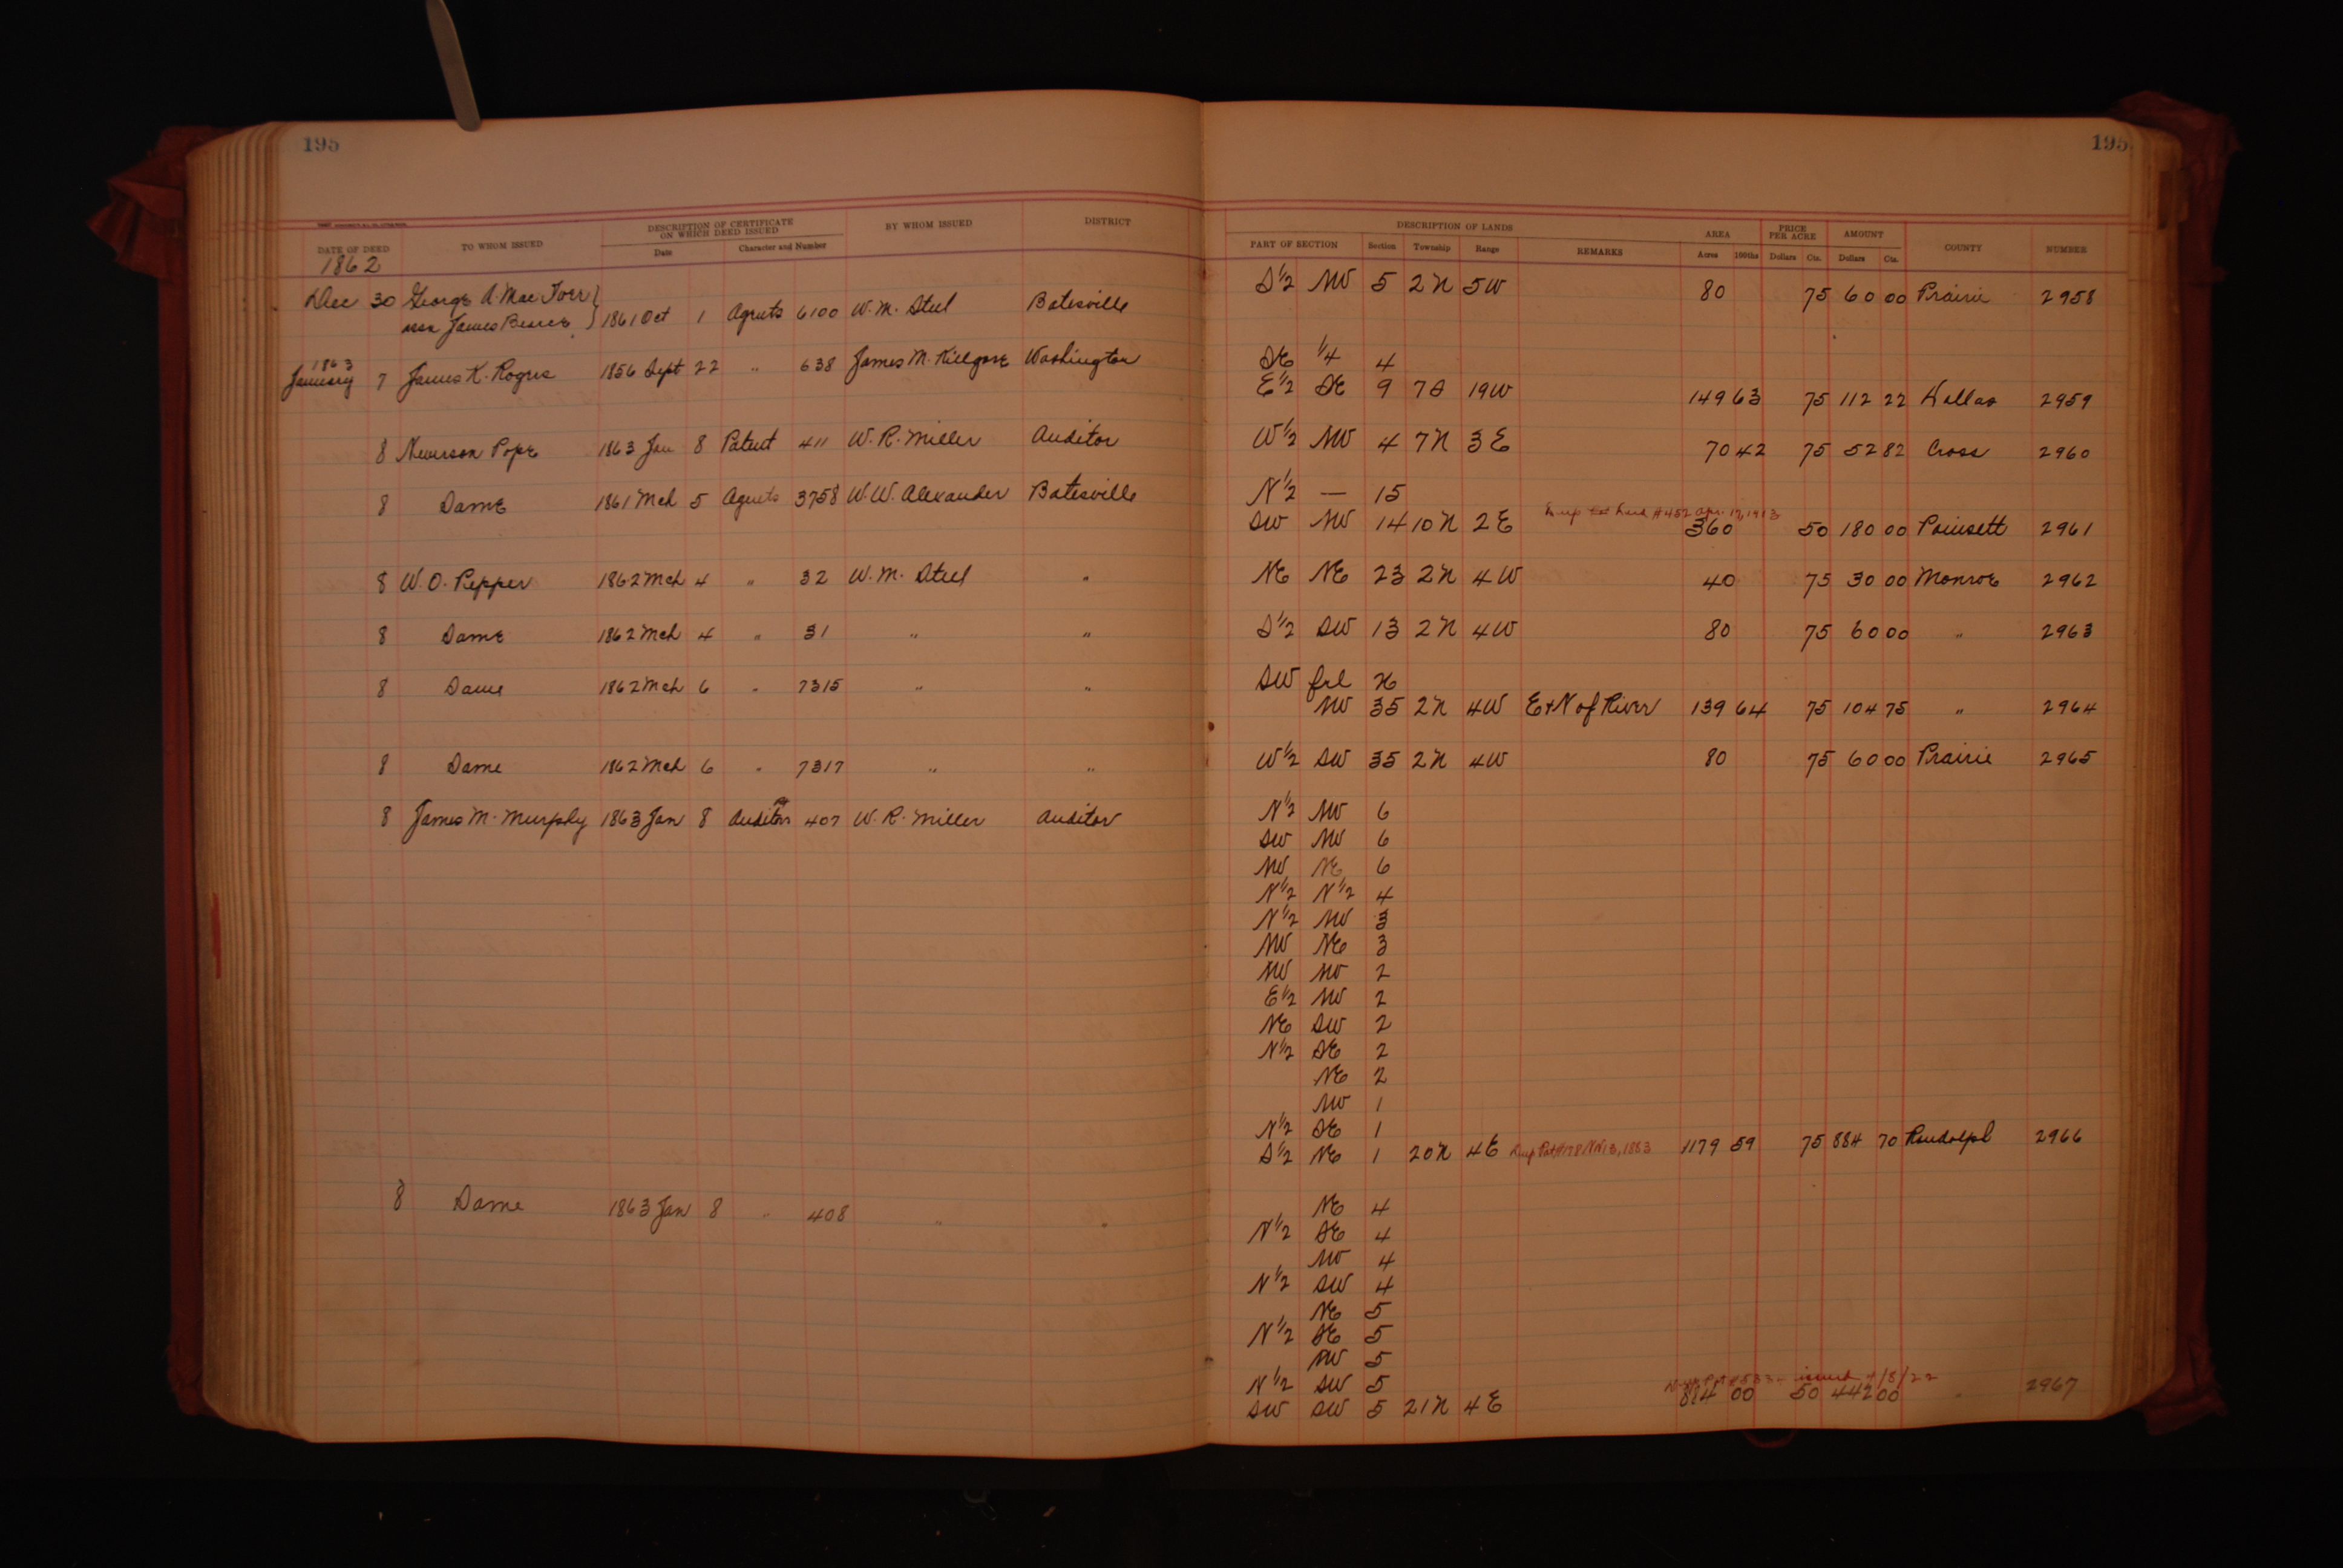 195
195
DATE OF DEED TO WHOM ISSUED DESCRIPTION OF CERTIFICATE ON WHICH DEED ISSUED Date Character and Number BY WHOM ISSUED DISTRICT
DESCRIPTION OF LANDS PART OF SECTION Section Township Range REMARKS AREA Acres 100ths PRICE PER ACRE Dollars Cts. AMOUNT Dollars Cts. COUNTY NUMBER
1862
Dec 30 George A. Mac 1861 Oct 1 Agents 6100 W. M. Steel Batesville S½ NW 5 2N 5W 80 75 60 00 Prairie 2958
James
1863
January 7 James K. Rogers 1856 Sept 22 " 638 James M. Killgore Washington SE ¼ 4
E½ SE 9 7S 19W 149 63 75 112 22 Dallas 2959
8 Newerson Pope 1863 Jan 8 Patent 411 W. R. Miller Auditor W½ NW 4 7N 3E 70 42 75 52 82 Cross 2960
8 Same 1861 Mch 5 Agents 3758 W. W. Alexander Batesville N½ — 15
SW NW 14 10N 2E #452 Apr. 17, 1913 360 50 180 00 Poinsett 2961
8 W. O. Pepper 1862 Mch 4 " 32 W. M. Steel " NE NE 23 2N 4W 40 75 30 00 Monroe 2962
8 Same 1862 Mch 4 " 31 " " S½ SW 13 2N 4W 80 75 60 00 " 2963
8 Same 1862 Mch 6 " 7315 " " SW frl
NW 35 2N 4W E & N of River 139 64 75 104 75 " 2964
8 Same 1862 Mch 6 " 7317 " " W½ SW 35 2N 4W 80 75 60 00 Prairie 2965
8 James M. Murphy 1863 Jan 8 Auditors 407 W. R. Miller Auditor N½ NW 6
SW NW 6
NW NE 6
N½ N½ 4
N½ NW 3
NW NE 3
NW NW 2
E½ NW 2
NE SW 2
N½ SE 2
NE 2
NW 1
N½ SE 1
S½ NE 1 20N 4E 1179 59 75 884 70 Randolph 2966
8 Same 1863 Jan 8 " 408 " " NE 4
N½ SE 4
NW 4
N½ SW 4
NE 5
N½ SE 5
NW 5
N½ SW 5
issued
SW SW 5 21N 4E 884 00 50 442 00 " 2967